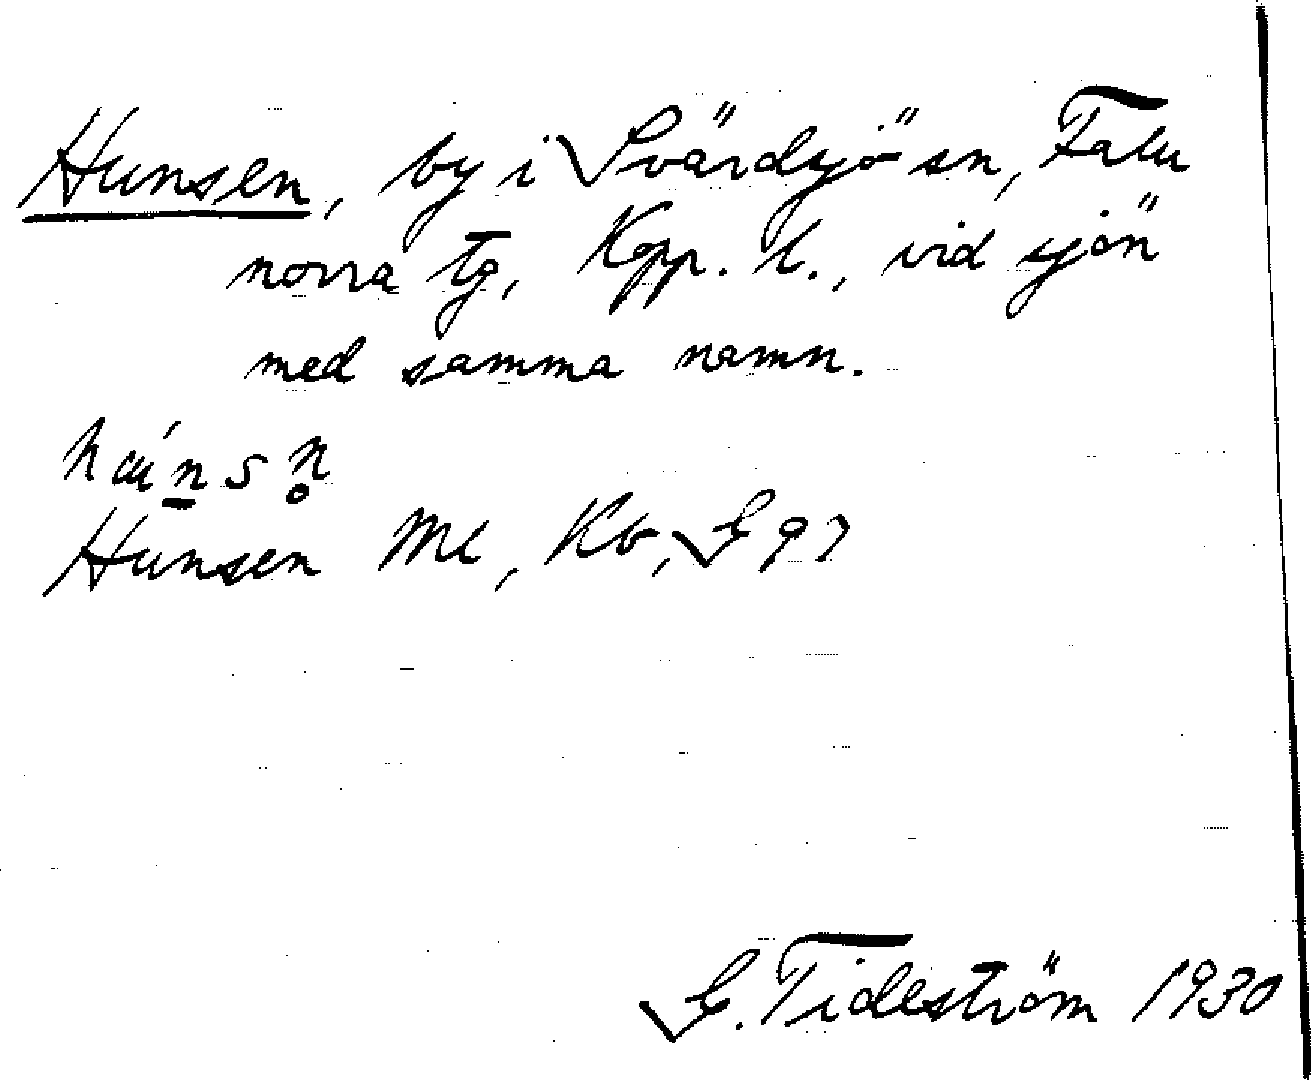 Hunsen, by i Svärdsjö sn, Falu
norra tg, Kopp. l., vid sjön
med samma namn.
Hunsen Ml, Kb, G 97
G. Tideström 1930